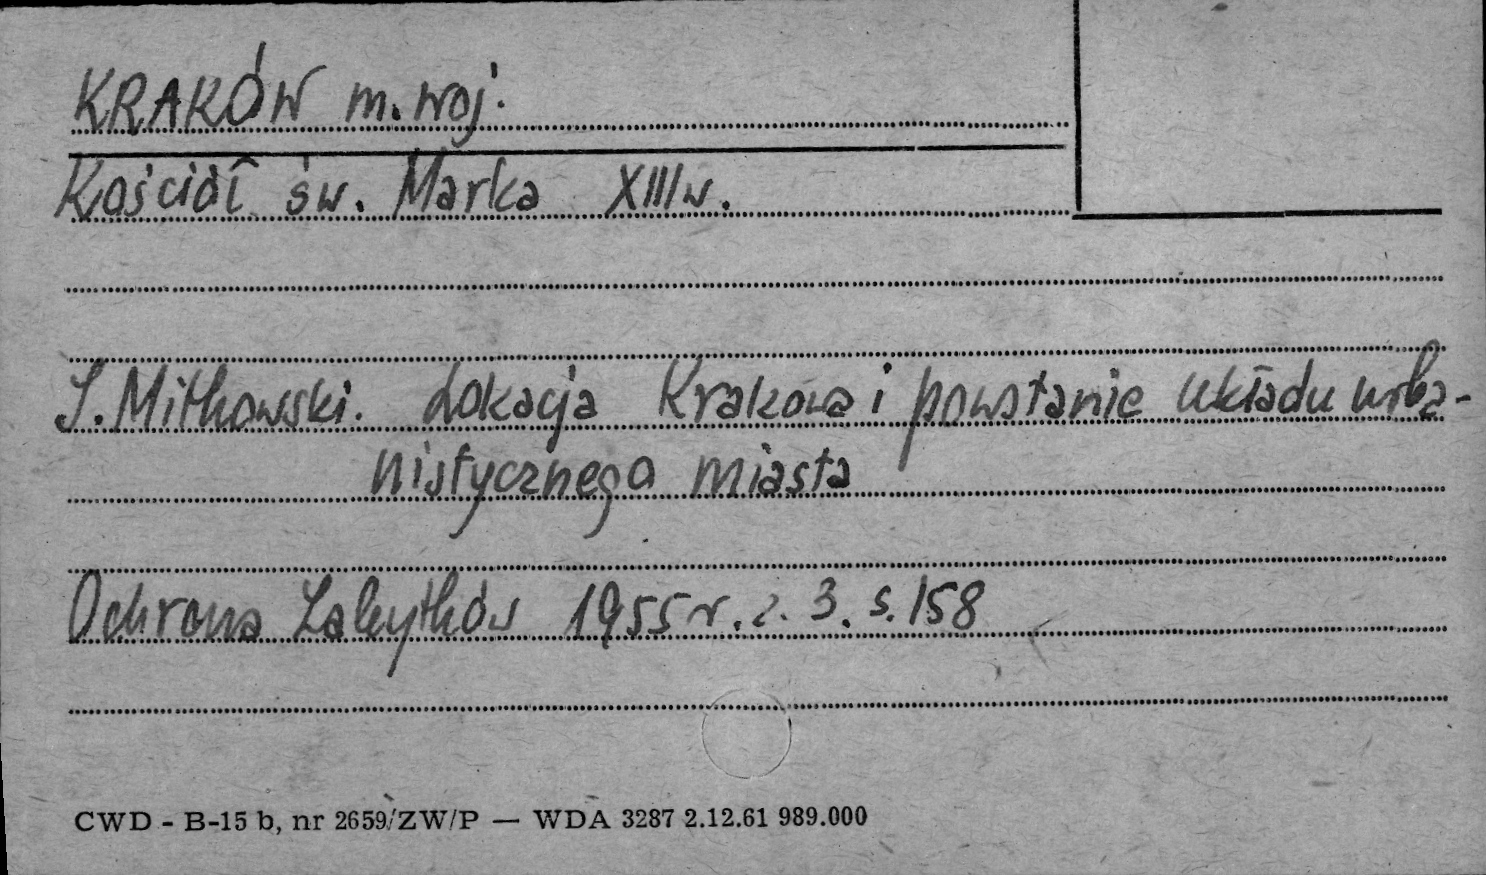 KRAKÓW m. woj.
Kościół św. Marka XIII w.
J. Mitkowski. Lokacja Krakowa i powstanie układu urba-
nistycznego miasta
Ochrona Zabytków 1955 r. z. 3. s. 158
CWD - B-15 b, nr 2659/ZW/P — WDA 3287 2.12.61 989.000